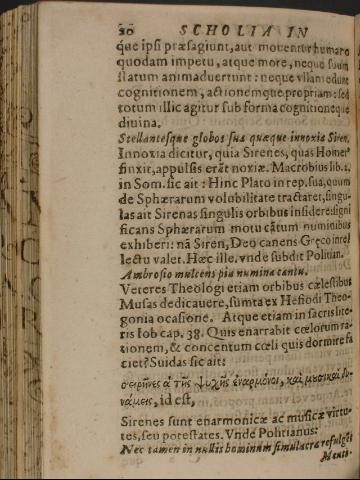 20 SCHOLIA IN
que ipsi præsagiunt, aut mouentur humano
quodam impetu, atque more, neque suum
statum animaduertunt: neque vllam edunt
cognitionem, actionemque propriam: sed
totum illic agitur sub forma cognitioneque
diuina.
Stellantesque globos sua quæque innoxia Siren.
Innoxia dicitur, quia Sirenes, quas Homerꝰ
finxit, appulsis erāt noxiæ. Macrobius lib. 2.
in Som. sic ait: Hinc Plato in rep. sua, quum
de Sphærarum volubilitate tractaret, singu-
las ait Sirenas singulis orbibus insidere: signi
ficans Sphærarum motu cātum numinibus
exhiberi: nā Siren, Deo canens Græco intel
lectu valet. Hæc ille. vnde subdit Politian.
Ambrosio mulcens pia numina cantu.
Veteres Theologi etiam orbibus cælestibus
Musas dedicauere, sumta ex Hesiodi Theo-
gonia ocasione. Atque etiam in sacris lite-
ris Iob cap. 38. Quis enarrabit cœlorum ra-
tionem, & concentum cœli quis dormire fa
ciet? Suidas sic ait:
σειρῆνες αἱ τῆς ψυχῆς ἐναρμόνιοι, καὶ μυσικαὶ δυ-
νάμεις, id est,
Sirenes sunt enarmonicæ ac musicæ virtu-
tes, seu potestates. Vnde Politianus:
Nec tamen in nullis hominum simulacra refulget
Menti-